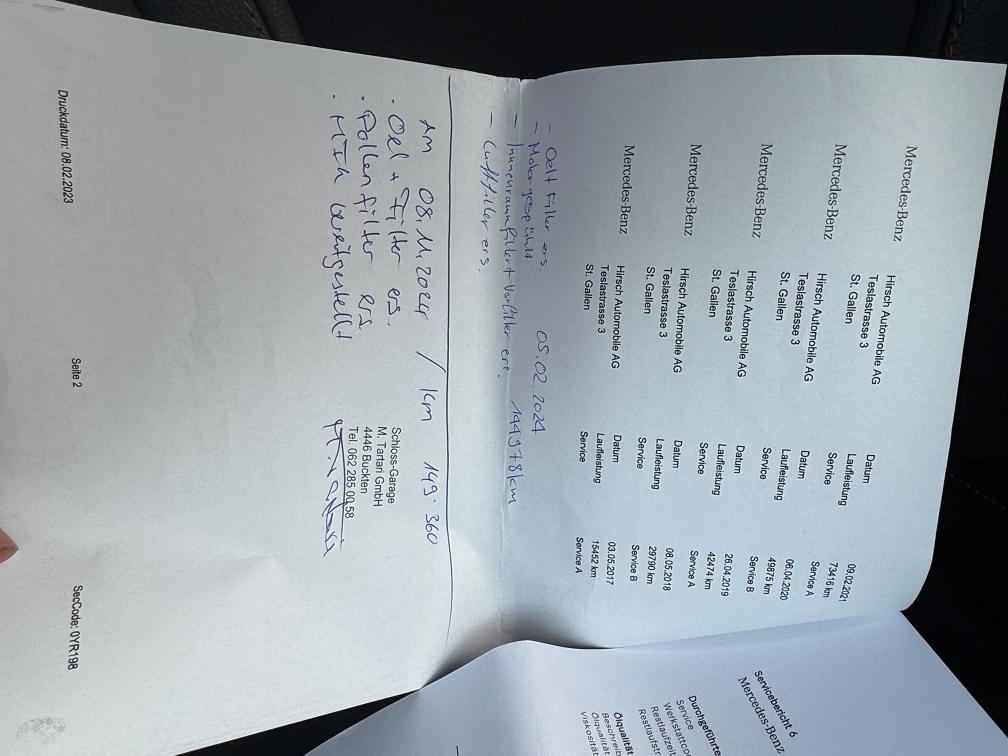 Mercedes-Benz
Hirsch Automobile AG
Teslastrasse 3
St. Gallen
Datum 09.02.2021
Laufleistung 73416 km
Service Service A
Mercedes-Benz
Hirsch Automobile AG
Teslastrasse 3
St. Gallen
Datum 06.04.2020
Laufleistung 49875 km
Service Service B
Mercedes-Benz
Hirsch Automobile AG
Teslastrasse 3
St. Gallen
Datum 26.04.2019
Laufleistung 42474 km
Service Service A
Mercedes-Benz
Hirsch Automobile AG
Teslastrasse 3
St. Gallen
Datum 08.05.2018
Laufleistung 29790 km
Service Service B
Mercedes-Benz
Hirsch Automobile AG
Teslastrasse 3
St. Gallen
Datum 03.05.2017
Laufleistung 15452 km
Service Service A
- Oel+Filter ers. 05.02.2024
- Motor gespühlt 144978km
- Innenraumfilter+Vorfilter ers.
- Luftfilter ers.
Am 08.11.2024 / km 149.360
. Oel + Filter ers.
. Pollenfilter ers.
. MFK bereitgestellt
Schloss-Garage
M. Tartari GmbH
4446 Buckten
Tel. 062 285 00 58
Druckdatum: 08.02.2023 Seite 2 SecCode: 0YR198
Servicebericht 6
Mercedes-Benz
Durchgeführte
Service
Werkstattco
Restlaufzei
Restlaufst
Ölqualität
Beschreib
Ölqualitä
Viskositä